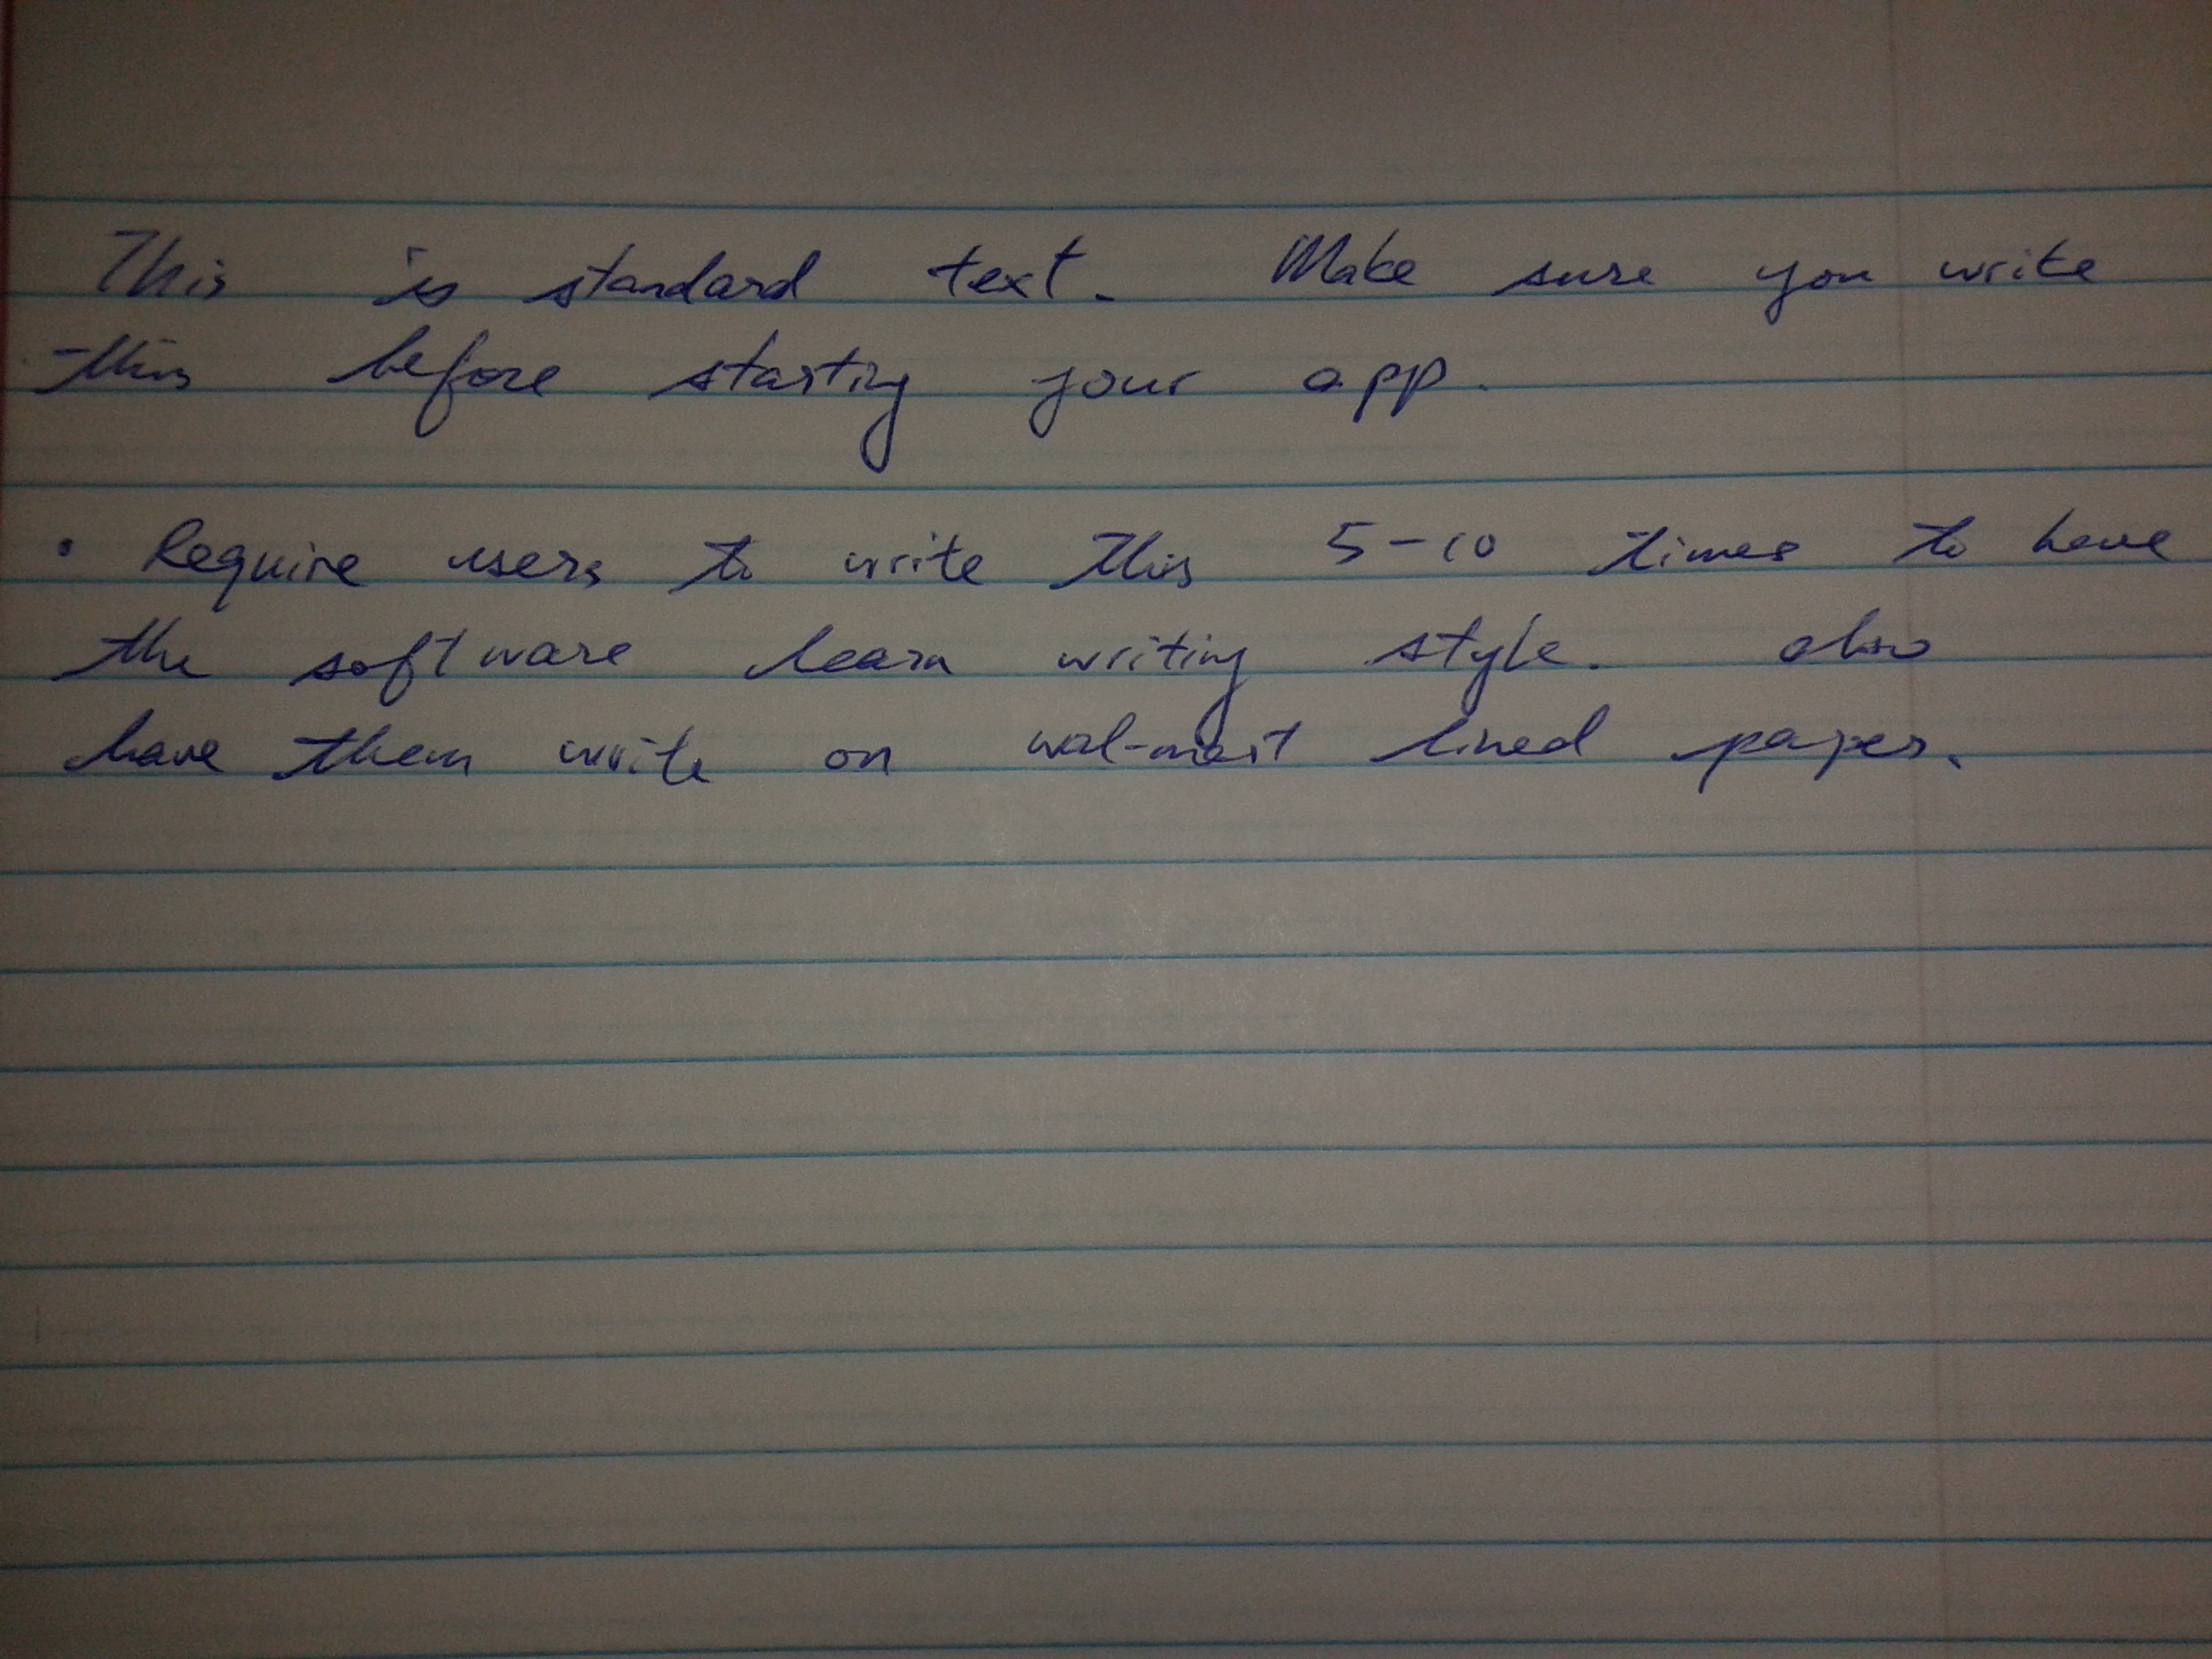 This is standard text. Make sure you write
this before starting your app.
• Require users to write this 5-10 times to have
the software learn writing style. also
have them write on wal-mart lined paper.